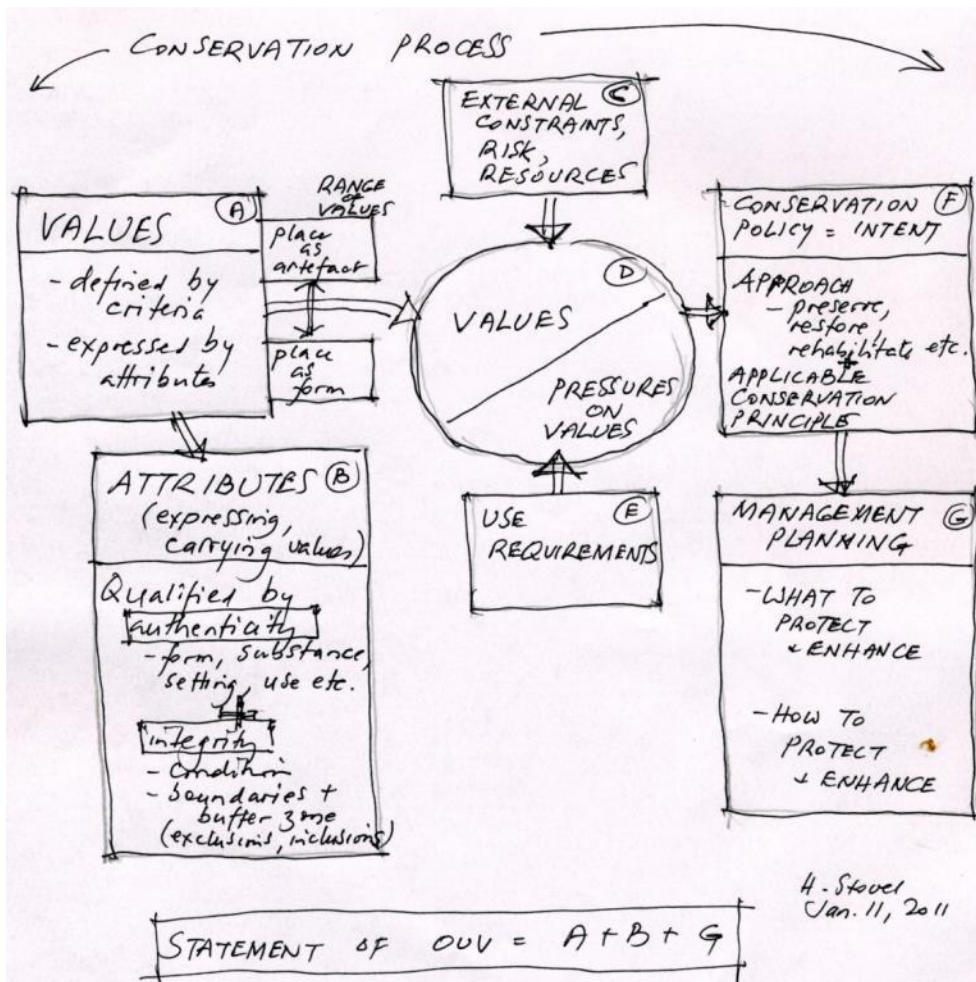 CONSERVATION PROCESS
EXTERNAL C
CONSTRAINTS,
RISK,
RESOURCES
VALUES A
- defined by
criteria
- expressed by
attributes
RANGE
OF
VALUES
place
as
artefact
place
as
form
D
VALUES
PRESSURES
ON
VALUES
CONSERVATION F
POLICY = INTENT
APPROACH
- preserve,
restore,
rehabilitate etc.
+
APPLICABLE
CONSERVATION
PRINCIPLE
ATTRIBUTES B
(expressing,
carrying values)
Qualified by
authenticity
- form, substance,
setting, use etc.
+
integrity
- condition
- boundaries +
buffer zone
(exclusions, inclusions)
USE E
REQUIREMENTS
MANAGEMENT G
PLANNING
- WHAT TO
PROTECT
+ ENHANCE
- HOW TO
PROTECT
+ ENHANCE
H. Stovel
Jan. 11, 2011
STATEMENT OF OUV = A + B + G